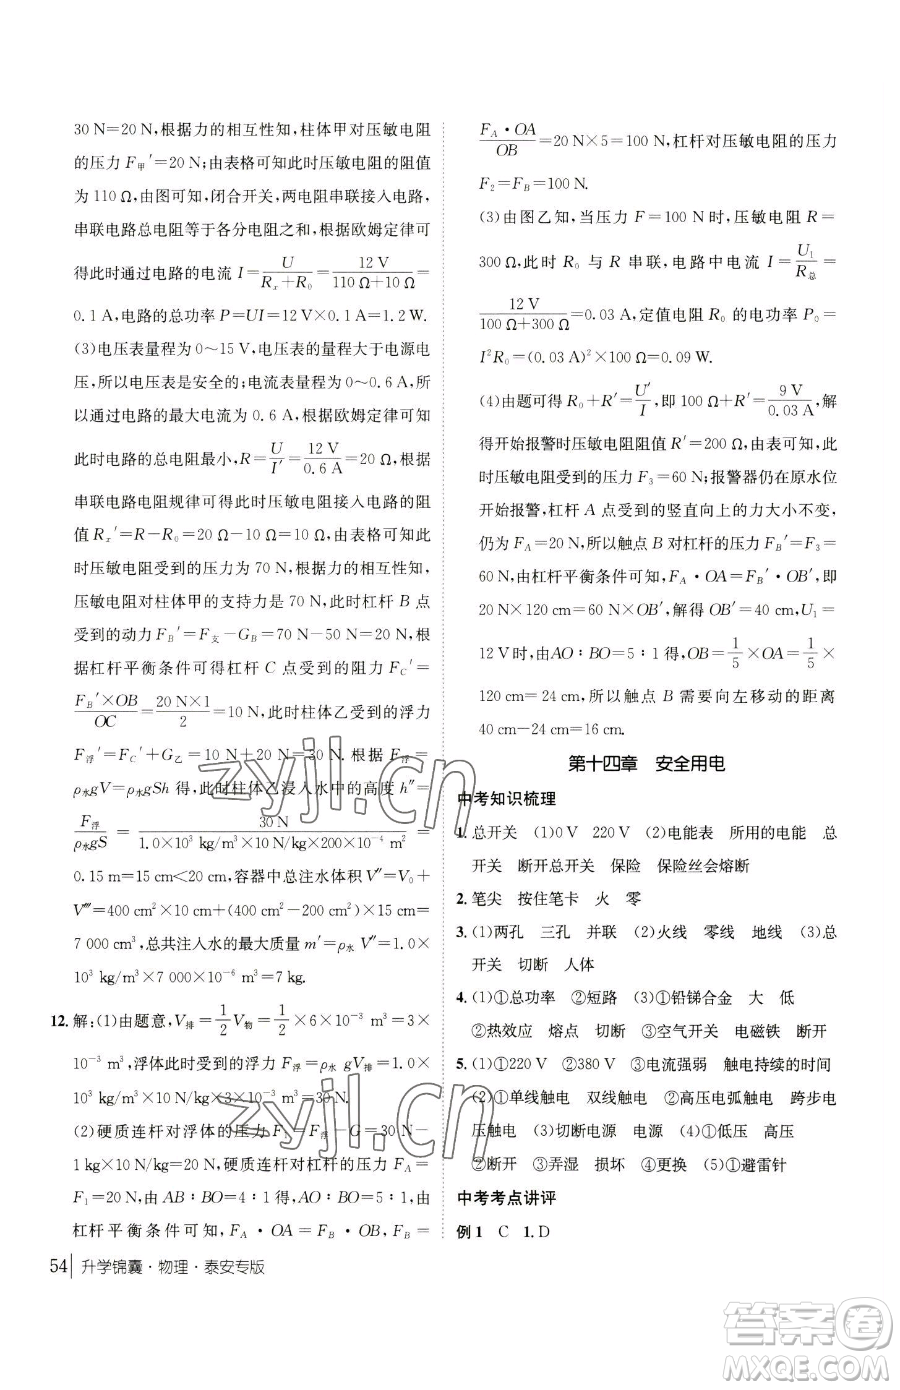 30 N=20 N,根据力的相互性知,柱体甲对压敏电阻
的压力 F甲′=20 N;由表格可知此时压敏电阻的阻值
为 110 Ω,由图可知,闭合开关,两电阻串联接入电路,
串联电路总电阻等于各分电阻之和,根据欧姆定律可
得此时通过电路的电流 I=U/(Rx+R0)=12 V/(110 Ω+10 Ω)=
0.1 A,电路的总功率 P=UI=12 V×0.1 A=1.2 W.
(3)电压表量程为 0～15 V,电压表的量程大于电源电
压,所以电压表是安全的;电流表量程为 0～0.6 A,所
以通过电路的最大电流为 0.6 A,根据欧姆定律可知
此时电路的总电阻最小,R=U/I′=12 V/0.6 A=20 Ω,根据
串联电路电阻规律可得此时压敏电阻接入电路的阻
值 Rx′=R-R0=20 Ω-10 Ω=10 Ω;由表格可知此
时压敏电阻受到的压力为 70 N,根据力的相互性可知
压敏电阻对柱体甲的支持力是 70 N,此时杠杆 B 点
受到的动力 FB′=F支-GB=70 N-50 N=20 N,根
据杠杆平衡条件可得杠杆 C 点受到的阻力 FC′=
(FB′×OB)/OC=(20 N×1)/2=10 N,此时柱体乙受到的浮力
F浮′=FC′+G乙=10 N+20 N=30 N. 根据 F浮=
ρ水gV=ρ水gSh 得,此时柱体乙浸入水中的高度 h″=
F浮/ρ水gS=30 N/(1.0×10³ kg/m³×10 N/kg×200×10⁻⁴ m²)=
0.15 m=15 cm<20 cm,容器中总注水体积 V″=V0+
V‴=400 cm²×10 cm+(400 cm²-200 cm²)×15 cm=
7 000 cm³,总共注入水的最大质量 m′=ρ水 V″=1.0×
10³ kg/m³×7 000×10⁻⁶ m³=7 kg.
12. 解:(1)由题意,V排=1/2V物=1/2×6×10⁻³ m³=3×
10⁻³ m³,浮体此时受到的浮力 F浮=ρ水 gV排=1.0×
10³ kg/m³×10 N/kg×3×10⁻³ m³=30 N.
(2)硬质连杆对浮体的压力 F1=F浮-G=30 N-
1 kg×10 N/kg=20 N,硬质连杆对杠杆的压力 FA=
F1=20 N,由 AB∶BO=4∶1,得 AO∶BO=5∶1,由
杠杆平衡条件可知,FA·OA=FB·OB,FB=
54 升学锦囊·物理·泰安专版
(FA·OA)/OB=20 N×5=100 N,杠杆对压敏电阻的压力
F2=FB=100 N.
(3)由图乙知,当压力 F=100 N时,压敏电阻 R=
300 Ω,此时 R0 与 R 串联,电路中电流 I=U1/R总=
12 V/(100 Ω+300 Ω)=0.03 A,定值电阻 R0 的电功率 P0=
I²R0=(0.03 A)²×100 Ω=0.09 W.
(4)由题可得 R0+R′=U′/I,即 100 Ω+R′=9 V/0.03 A,解
得开始报警时压敏电阻阻值 R′=200 Ω,由表可知,此时
压敏电阻受到的压力 F3=60 N;报警器仍在原水位
开始报警,杠杆 A 点受到的竖直向上的力大小不变,
仍为 FA=20 N,所以触点 B 对杠杆的压力 FB′=F3=
60 N,由杠杆平衡条件可知,FA·OA=FB′·OB′,即
20 N×120 cm=60 N×OB′,解得 OB′=40 cm,U1=
12 V时,由 AO∶BO=5∶1得,OB=1/5×OA=1/5×
120 cm=24 cm,所以触点 B 需要向左移动的距离
40 cm-24 cm=16 cm.
第十四章 安全用电
中考知识梳理
1. 总开关 (1)0 V 220 V (2)电能表 所用的电能 总
开关 断开总开关 保险 保险丝会熔断
2. 笔尖 按住笔卡 火 零
3. (1)两孔 三孔 并联 (2)火线 零线 地线 (3)总
开关 切断 人体
4. (1)①总功率 ②短路 (2)①铅锑合金 大 低
②热效应 熔点 切断 ③空气开关 电磁铁 断开
5. (1)①220 V ②380 V ③电流强弱 触电持续的时间
(2)①单线触电 双线触电 ②高压电弧触电 跨步电
压触电 (3)切断电源 电源 (4)①低压 高压
②断开 ③弄湿 损坏 ④更换 (5)避雷针
中考考点讲评
例 1 C 1. D
zyjl.cn
zyjl.cn
答案圈
MXQE.COM